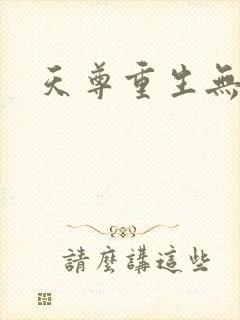 天尊重生無
請麼講這些